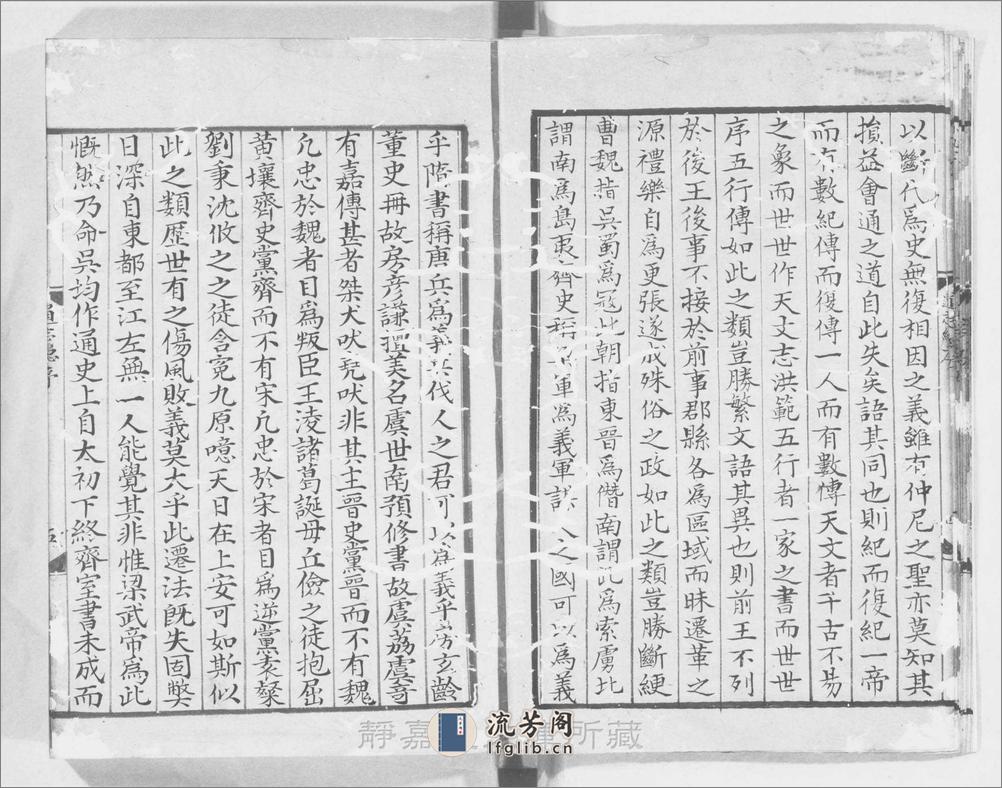 以斷代爲史無復相因之義雖有仲尼之聖亦莫知其
損益會通之道自此失矣語其同也則紀而復紀一帝
而有數紀傳而復傳一人而有數傳天文者千古不易
之象而世世作天文志洪範五行者一家之書而世世
序五行傳如此之類豈勝繁文語其異也則前王不列
於後王後事不接於前事郡縣各爲區域而昧遷革之
源禮樂自爲更張遂成殊俗之政如此之類豈勝斷綆
曹魏指吳蜀爲寇北朝指東晉爲僭南謂北爲索虜北
謂南爲島夷齊史稱軍爲義軍謀人之國可以爲義
乎隋書稱唐兵爲義兵伐人之君可以爲義乎房玄齡
董史冊故房彦謙擅美名虞世南預修書故虞荔虞寄
有嘉傳甚者桀犬吠堯吠非其主晉史黨晉而不有魏
凢忠於魏者目爲叛臣王淩諸葛誕毋丘儉之徒抱屈
黄壤齊史黨齊而不有宋凢忠於宋者目爲逆黨袁粲
劉秉沈攸之之徒含寃九原噫天日在上安可如斯似
此之類歴世有之傷風敗義莫大乎此遷法旣失固弊
日深自東都至江左無一人能覺其非惟梁武帝爲此
慨然乃命吳均作通史上自太初下終齊室書未成而
五
靜嘉 所藏
流芳阁
lfglib.cn